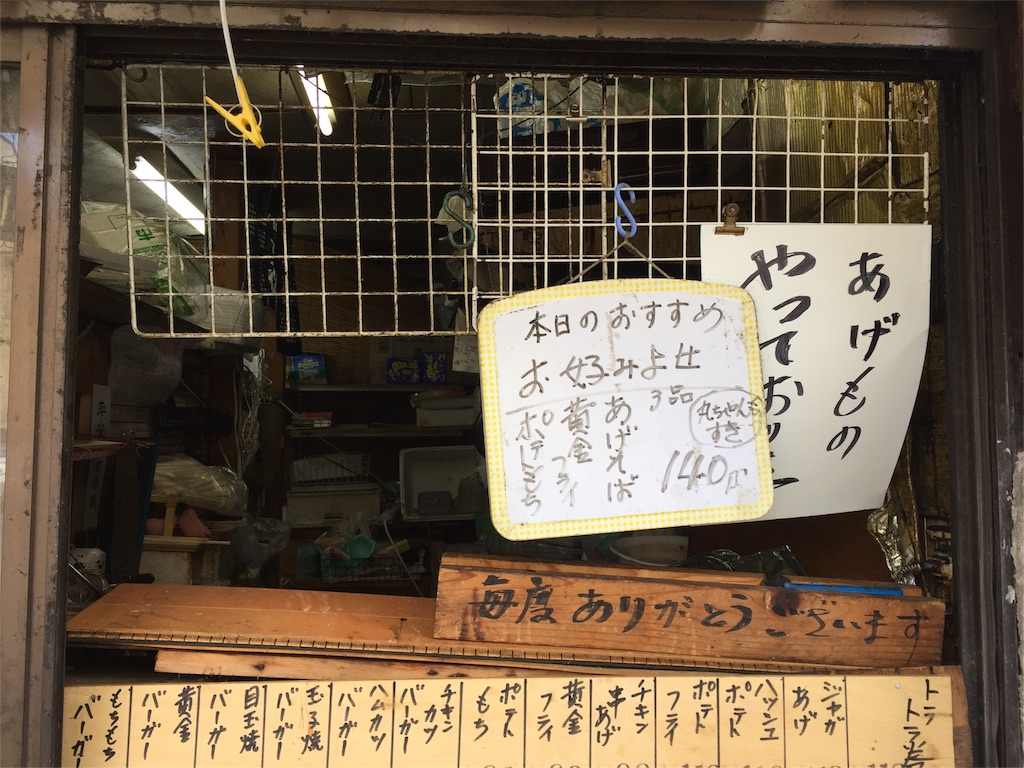 あげもの
やっており
本日のおすすめ
お好みよせ
3品
あげそば
黄金フライ
ポテトもち
すき
140円
毎度ありがとうございます
トラトラ巻
ジャガあげ
ハッシュポテト
ポテトフライ
チキン串あげ
黄金フライ
ポテトもち
チキンカツバーガー
ハムカツバーガー
玉子焼バーガー
目玉焼バーガー
黄金バーガー
もちもちバーガー